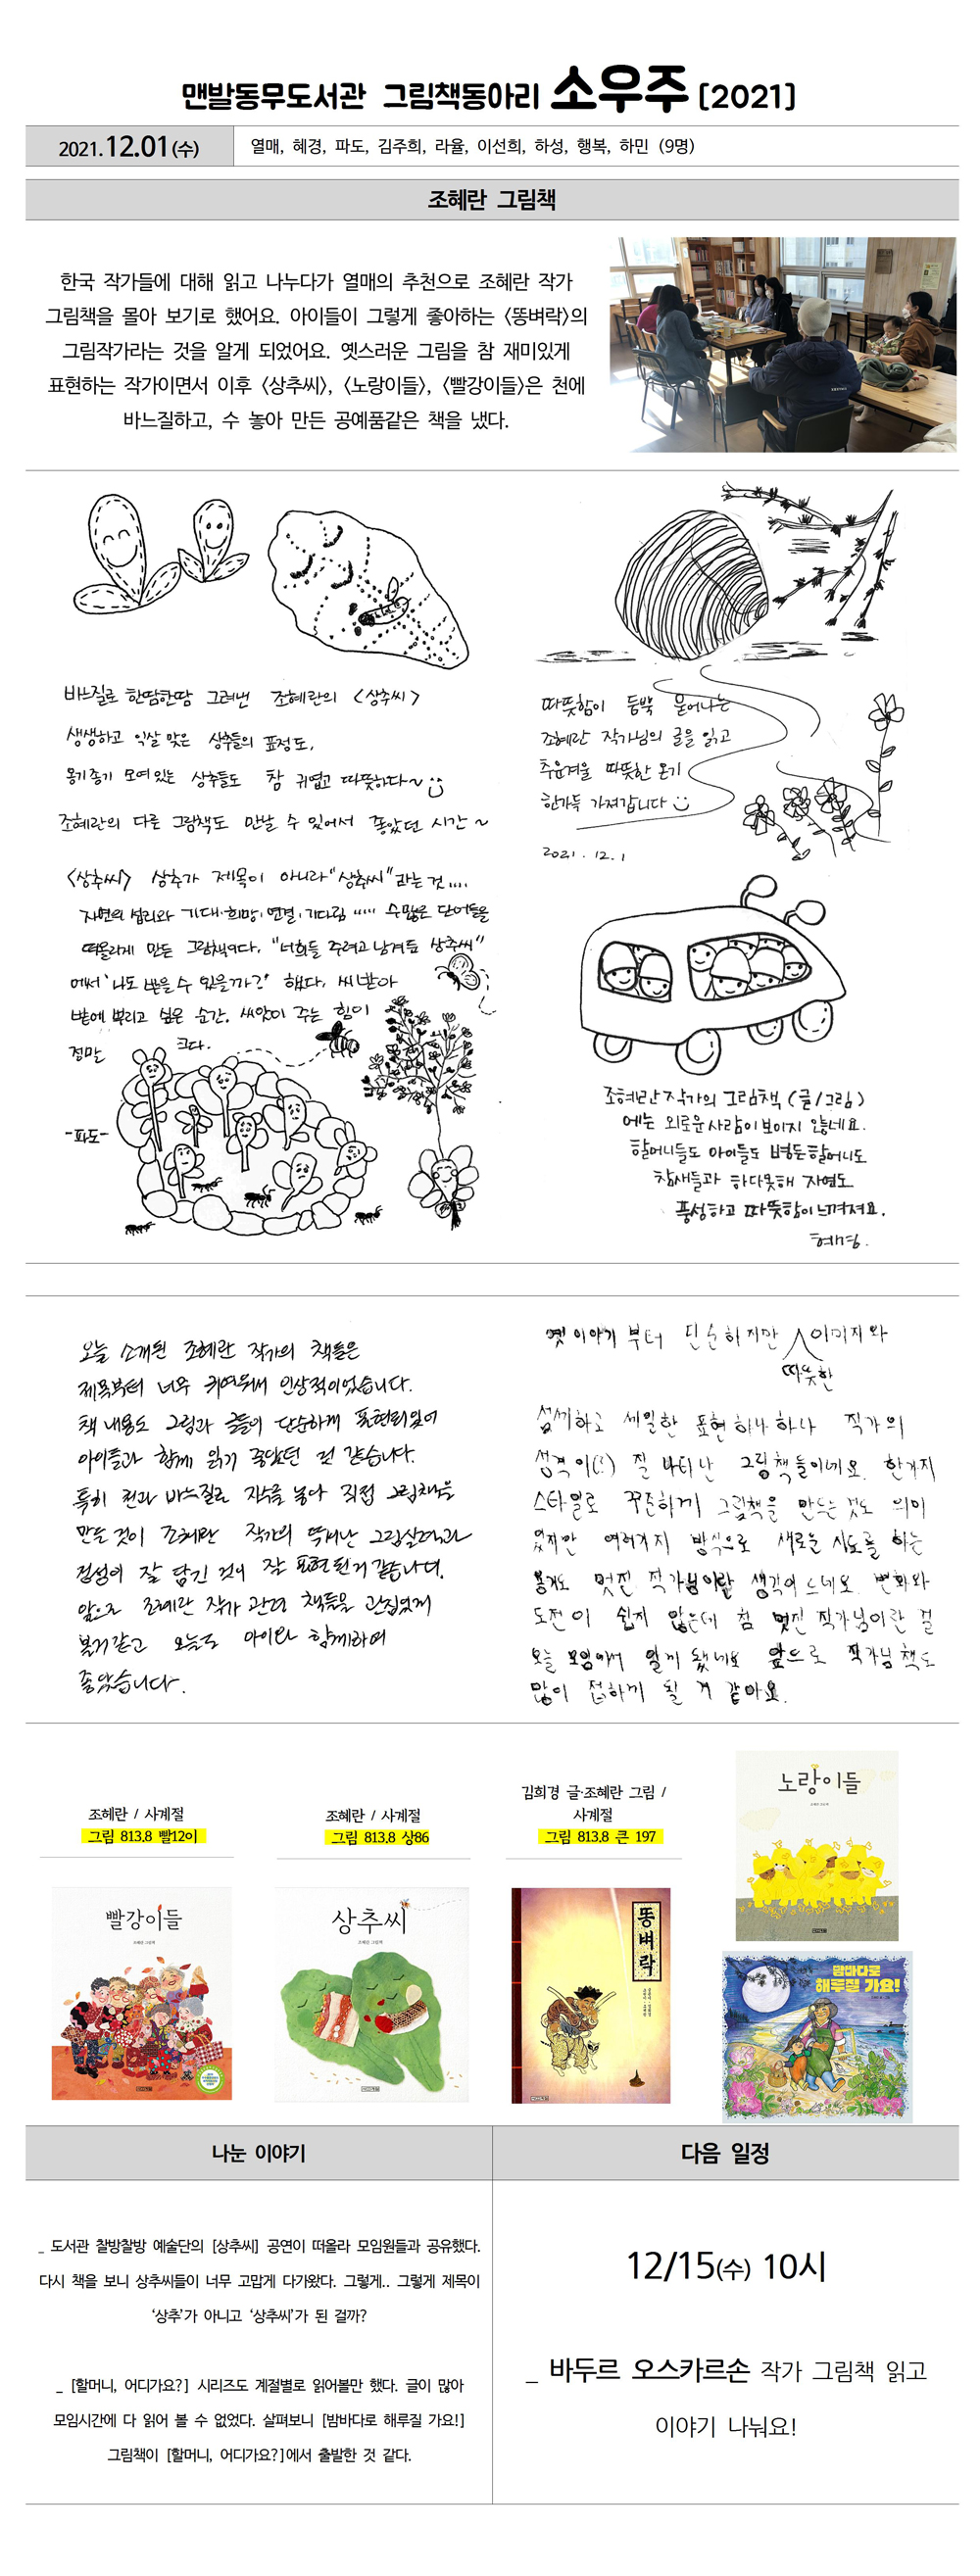 맨발동무도서관 그림책동아리 소우주 [2021]
2021.12.01(수)
열매, 혜경, 파도, 김주희, 라율, 이선희, 하성, 행복, 하민 (9명)
조혜란 그림책
한국 작가들에 대해 읽고 나누다가 열매의 추천으로 조혜란 작가
그림책을 몰아 보기로 했어요. 아이들이 그렇게 좋아하는 <똥벼락>의
그림작가라는 것을 알게 되었어요. 옛스러운 그림을 참 재미있게
표현하는 작가이면서 이후 <상추씨>, <노랑이들>, <빨강이들>은 천에
바느질하고, 수 놓아 만든 공예품같은 책을 냈다.
바느질로 한땀한땀 그려낸 조혜란의 <상추씨>
생생하고 익살 맞은 상추들의 표정도,
옹기종기 모여있는 상추들도 참 귀엽고 따뜻하다~
조혜란의 다른 그림책도 만날 수 있어서 좋았던 시간~
<상추씨> 상추가 제목이 아니라 "상추씨"라는 것....
자연의 섭리와 기대·희망·연결·기다림 ..... 수많은 단어들을
떠올리게 만든 그림책이다. "너희들 주려고 남겨둔 상추씨"
에서 '나도 받을 수 있을까?' 했다. 씨 받아
밭에 뿌리고 싶은 순간. 씨앗이 주는 힘이
정말 크다.
-파도-
따뜻함이 듬뿍 묻어나는
조혜란 작가님의 글을 읽고
추운겨울 따뜻한 온기
한가득 가져갑니다
2021. 12. 1
조혜란 작가의 그림책 (글/그림)
에는 외로운 사람이 보이지 않네요.
할머니들도 아이들도 병든할머니도
참새들과 하다못해 자연도
풍성하고 따뜻함이 느껴져요.
혜경.
오늘 소개된 조혜란 작가의 책들은
제목부터 너무 귀여워서 인상적이었습니다.
책 내용도 그림과 글들이 단순하게 표현되있어
아이들과 함께 읽기 좋았던 것 같습니다.
특히 천과 바느질로 자수를 놓아 직접 그림책을
만든 것이 조혜란 작가의 뛰어난 그림실력과
정성이 잘 담긴 것이 잘 표현된거 같습니다.
앞으로 조혜란 작가 관련 책들을 관심있게
볼거같고 오늘도 아이와 함께하여
좋았습니다.
옛 이야기 부터 단순하지만 따뜻한 이미지와
섬세하고 세밀한 표현 하나하나 작가의
성격이(?) 잘 나타난 그림책들이네요. 한가지
스타일로 꾸준하게 그림책을 만드는것도 의미
있지만 여러가지 방식으로 새로운 시도를 하는
용기도 멋진 작가님이란 생각이 드네요. 변화와
도전이 쉽지 않은데 참 멋진 작가님이란 걸
오늘 모임에서 알게 됐네요 앞으로 작가님 책도
많이 접하게 될 거 같아요.
조혜란 / 사계절
그림 813.8 빨12이
조혜란 / 사계절
그림 813.8 상86
김희경 글·조혜란 그림 /
사계절
그림 813.8 큰 197
노랑이들
빨강이들
상추씨
조혜란 그림책
똥벼락
밤바다로
해루질 가요!
나눈 이야기
다음 일정
_ 도서관 찰방찰방 예술단의 [상추씨] 공연이 떠올라 모임원들과 공유했다.
다시 책을 보니 상추씨들이 너무 고맙게 다가왔다. 그렇게.. 그렇게 제목이
‘상추’가 아니고 ‘상추씨’가 된 걸까?
_ [할머니, 어디가요?] 시리즈도 계절별로 읽어볼만 했다. 글이 많아
모임시간에 다 읽어 볼 수 없었다. 살펴보니 [밤바다로 해루질 가요!]
그림책이 [할머니, 어디가요?]에서 출발한 것 같다.
12/15(수) 10시
_ 바두르 오스카르손 작가 그림책 읽고
이야기 나눠요!